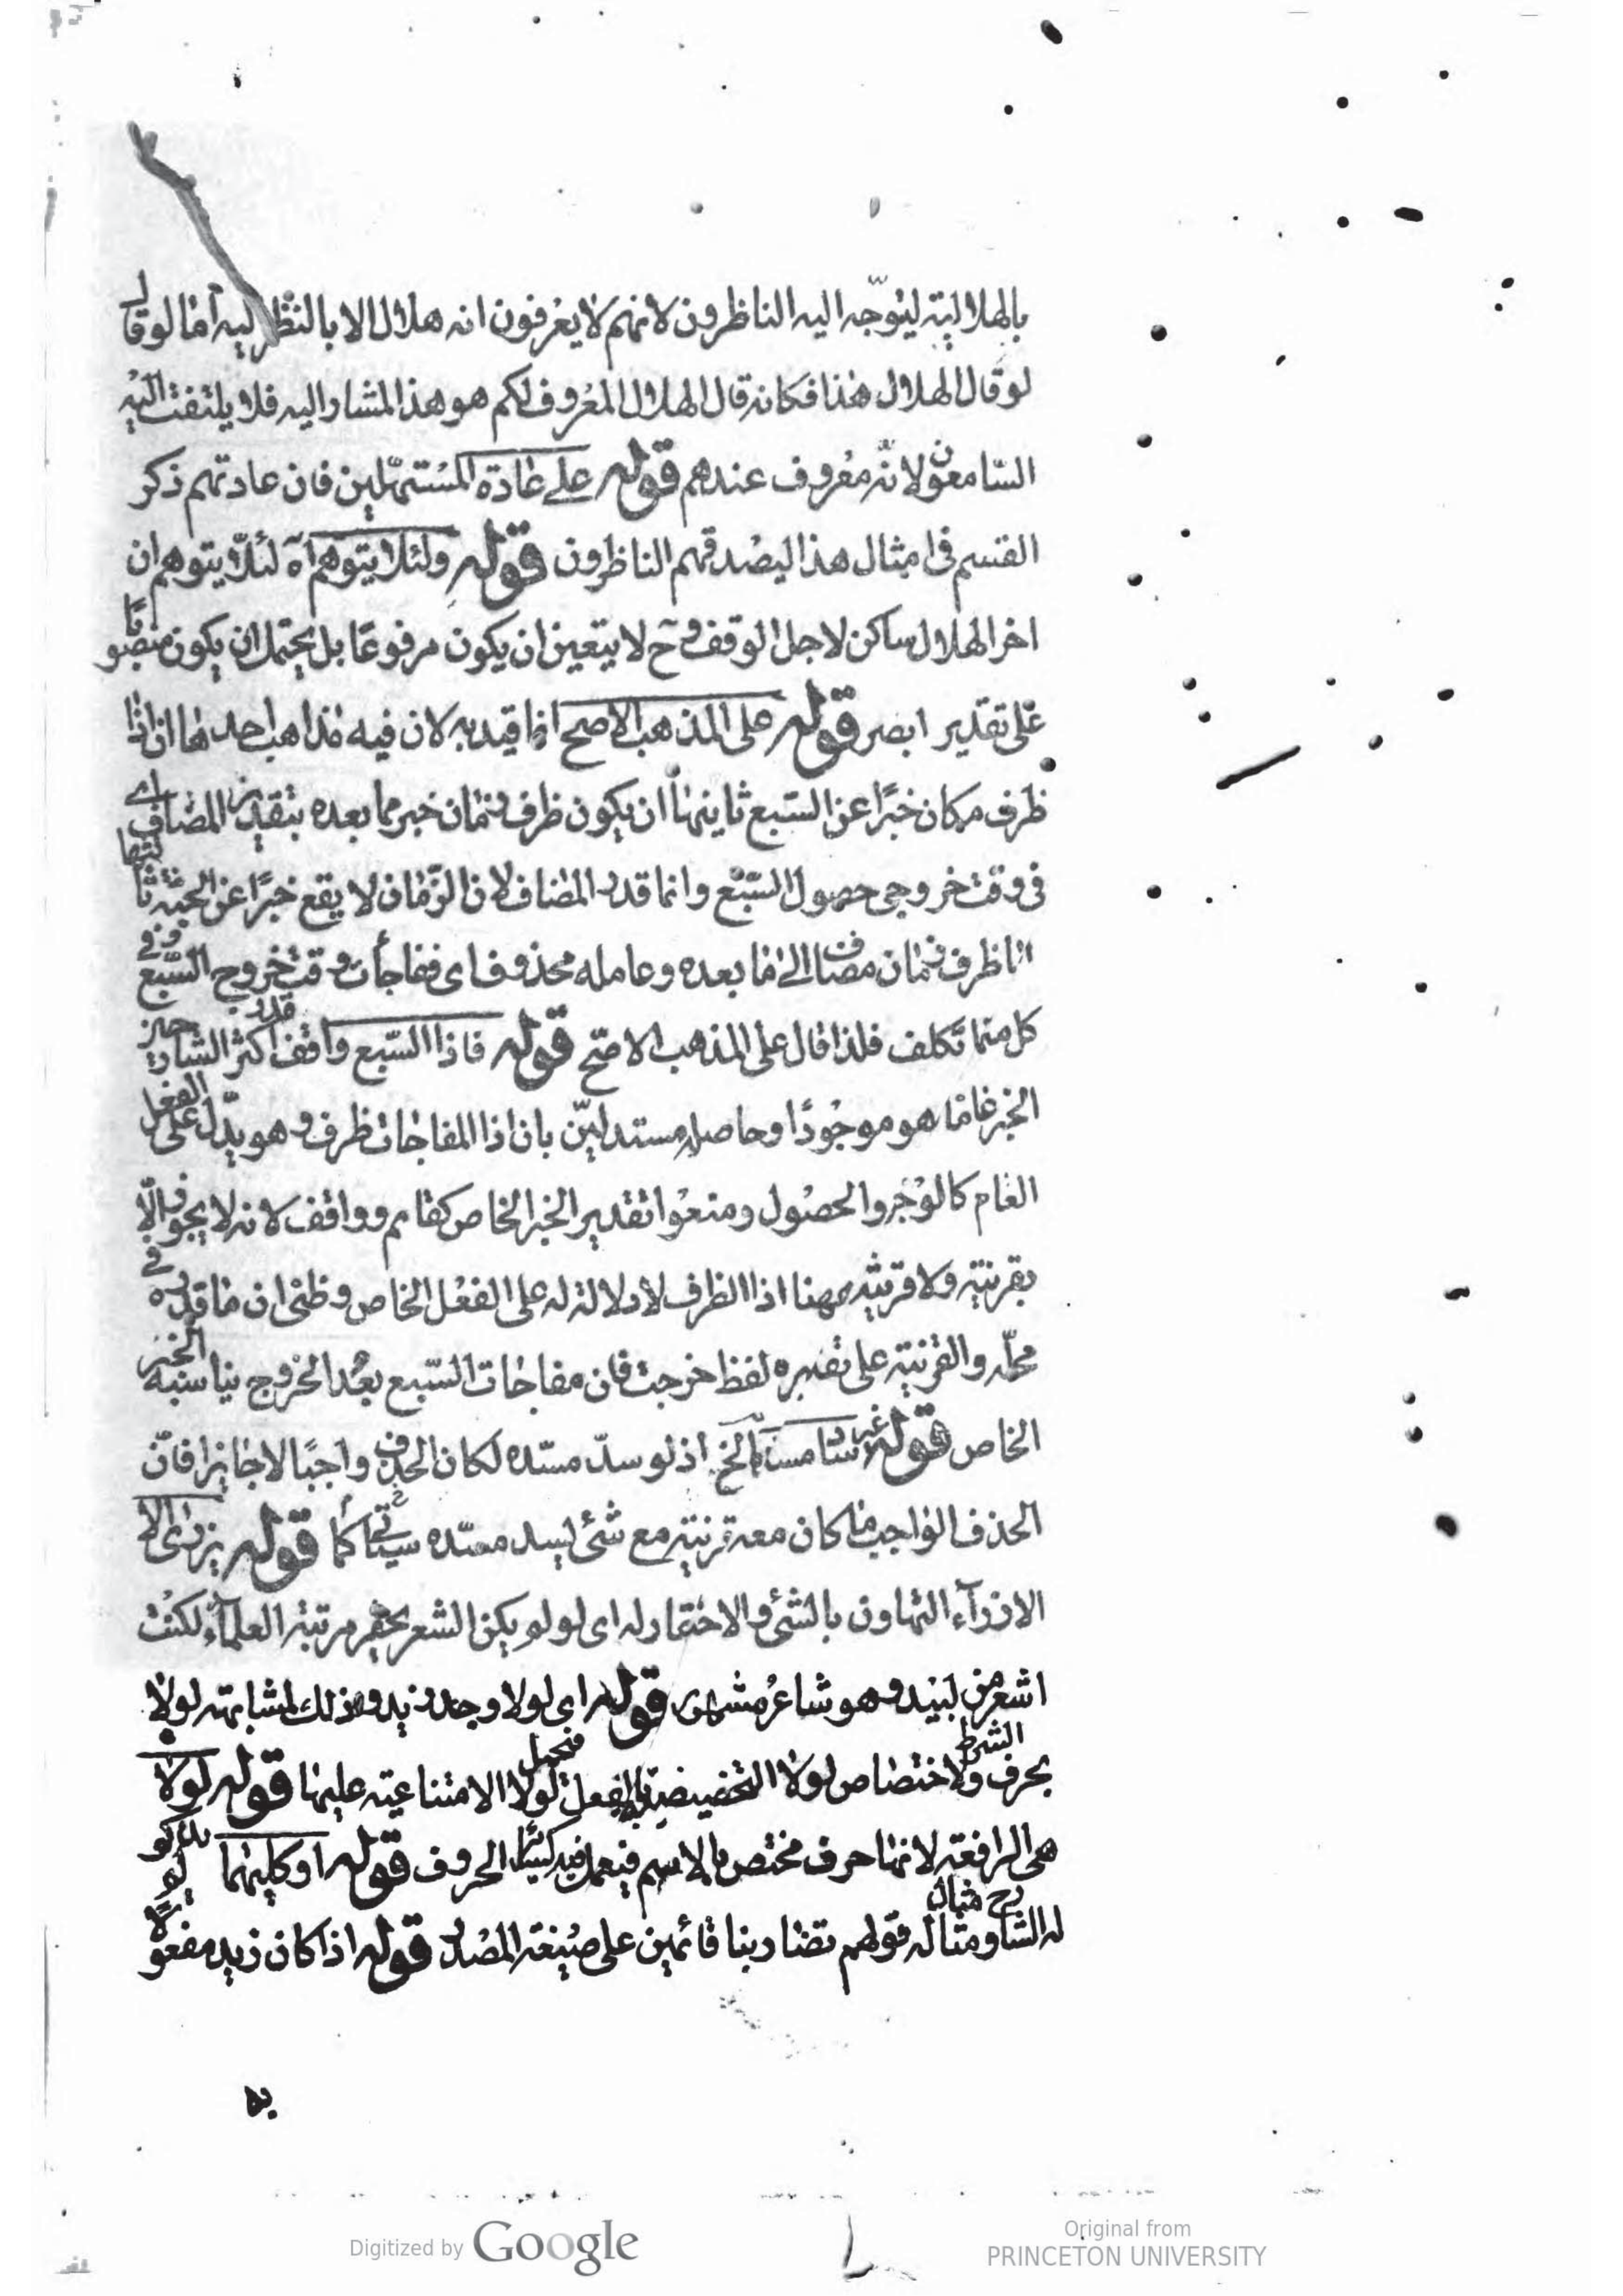 بالهلالية ليتوجه اليه الناظرون لانهم لا يعرفون انه هلال الا بالنظر اليه اما لو قال
لو قال الهلال هذا فكانه قال الهلال المعروف لكم هو هذا المشار اليه فلا يلتفت اليه
السامعون لانه معروف عندهم قوله على عادة المستهلين فان عادتهم ذكر
القسم في امثال هذا ليصدقهم الناظرون قوله ولئلا يتوهم اه لئلا يتوهم ان
اخر الهلال ساكن لاجل الوقف وح لا يتعين ان يكون مرفوعا بل يحتمل ان يكون منصوبا
على تقدير ابصر قوله على المذهب الاصح انما قيد به لان فيه مذاهب احدها ان اذا
ظرف مكان خبرا عن السبع ثانيها ان يكون ظرف زمان خبر مما بعده بتقدير المضاف اي
في وقت خروجي حصول السبع وانما قدر المضاف لان الزمان لا يقع خبرا عن الجثة ثالثها
انها ظرف زمان مضاف الى ما بعده وعامله محذوف اى ففاجأت وقت خروج السبع وفي
كل منها تكلف فلذا قال على المذهب الاصح قوله فاذا السبع واقف اكثر الشارحين قدر
الخبر عاما هو موجودا وحاصله مستدلين بان اذا المفاجات ظرف وهو يدل على الفعل
العام كالوجود والحصول ومنعوا تقدير الخبر الخاص كقايم وواقف لانه لا يجوز الا
بقرينة ولا قرينة ههنا اذا الظرف لا دلالة له على الفعل الخاص وظنى ان ما قدره في
محله والقرينة على تقديره لفظ خرجت فان مفاجات السبع بعد الخروج يناسبه الخبر
الخاص قوله غير ساد مسده الخ اذ لو سد مسده لكان الحذف واجبا لا جايزا فان
الحذف الواجب ما كان معه قرينة مع شئ يسد مسده كما سيأتى قوله يزرى الا
الازرآء التهاون بالشئ والاحتقار له اى لو لم يكن الشعر يحقر مرتبة العلمآء لكنت
اشعر من لبيد وهو شاعر مشهور قوله اى لولا وجد زيد وذلك لمشابهته لولا
بحرف الشرط ولاختصاص لولا التحضيضية بالفعل فتحمل لولا الامتناعية عليها قوله لولا
هى الرافعة لانها حرف مختص بالاسم فيعمل فيه كسائر الحروف قوله او كليهما
له الشارح ومثاله قولهم تضاربنا قائمين على صيغة المصدر قوله اذا كان زيد مفعولا
به
Digitized by Google
Original from
PRINCETON UNIVERSITY